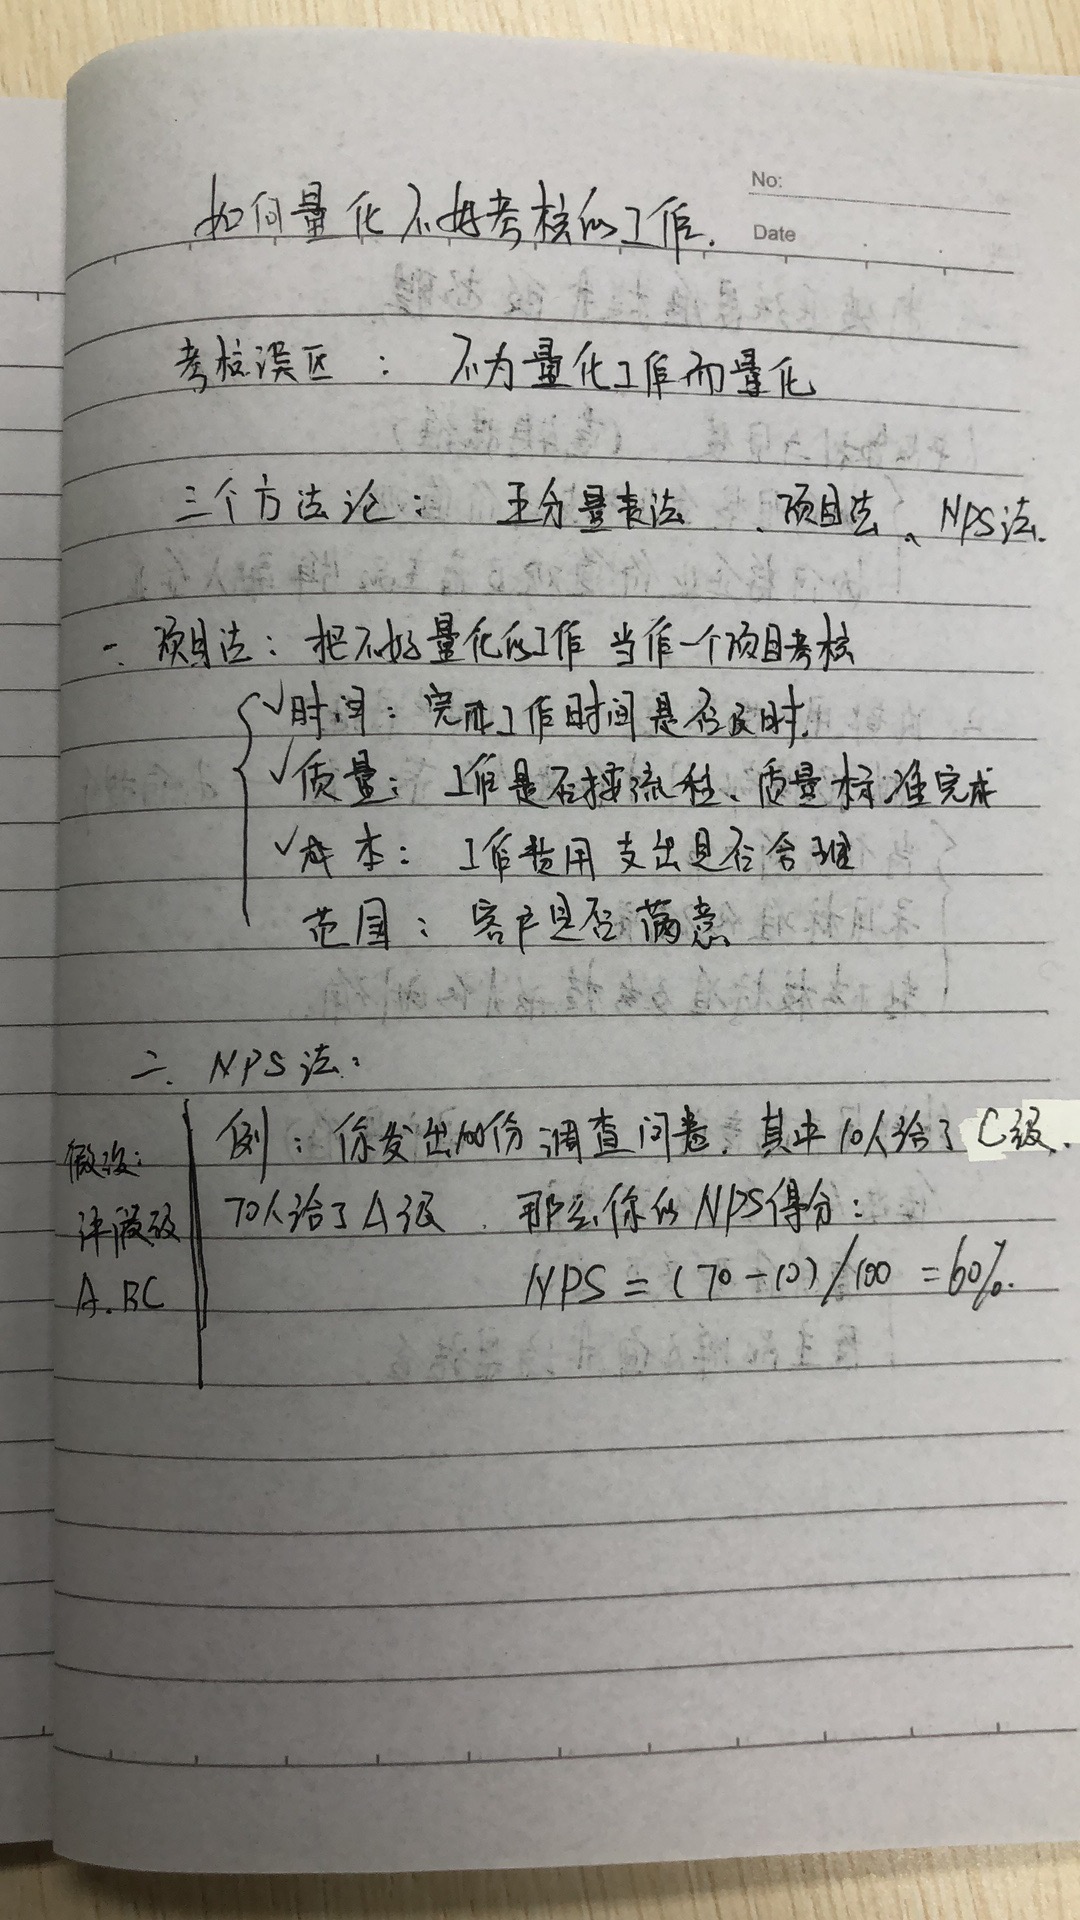 No:
Date
如何量化不好考核的工作.
考核误区： 不为量化工作而量化
三个方法论： 五分量表法、项目法、NPS法.
一. 项目法：把不好量化的工作当作一个项目考核
✓时间：完成工作时间是否及时.
✓质量：工作是否按流程、质量标准完成
✓成本：工作费用支出是否合理
范围：客户是否满意
二. NPS法：
例：你发出100份调查问卷，其中10人给了C级.
70人给了A级. 那么你的NPS得分：
NPS=(70-10)/100=60%.
假设：
评级
A.BC